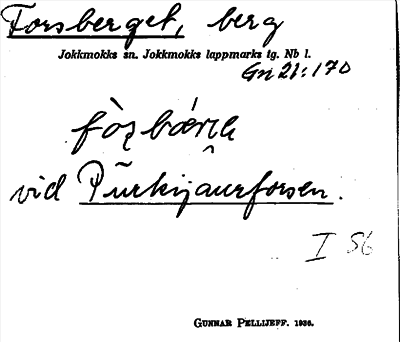 Forsberget, berg
Jokkmokks sn. Jokkmokks lappmarks tg. Nb l.
Gn 21:170
vid Purkijaurforsen.
I 56
GUNNAR PELLIJEFF. 1936.